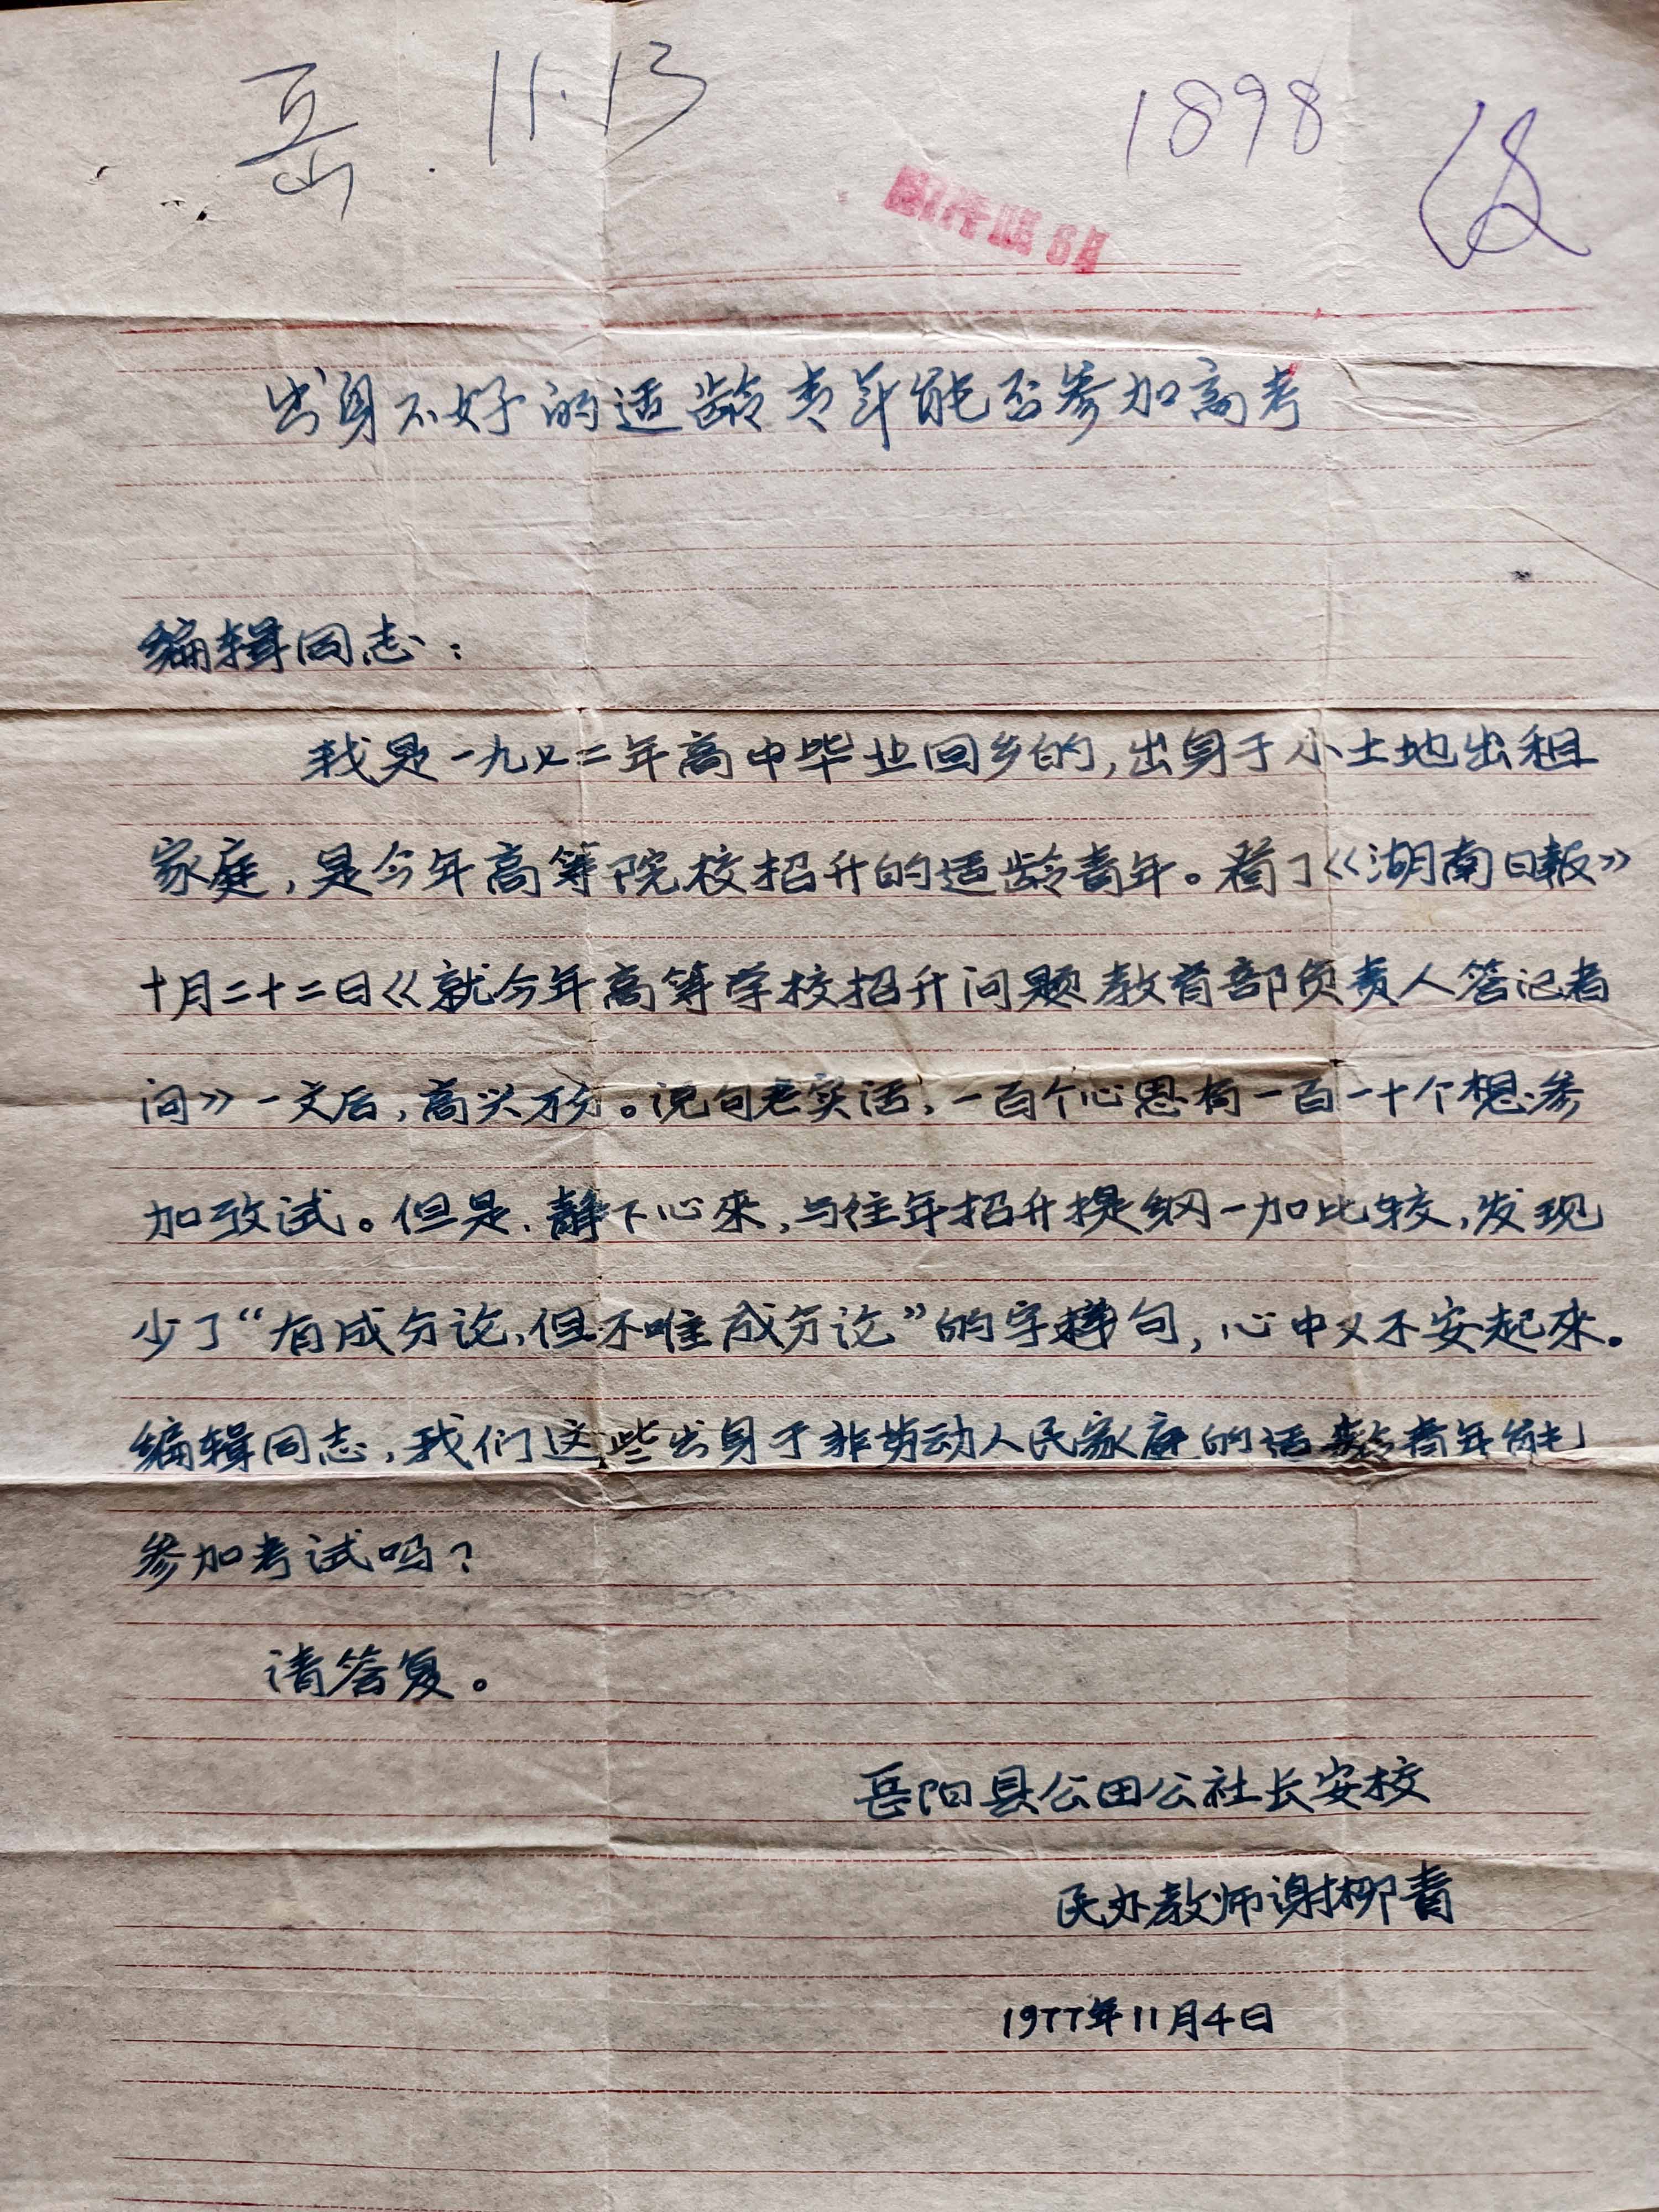 岳. 11.13
1898
出身不好的适龄青年能否参加高考
编辑同志：
我是一九七二年高中毕业回乡的，出身于小土地出租
家庭，是今年高等院校招升的适龄青年。看了《湖南日报》
十月二十二日《就今年高等学校招升问题教育部负责人答记者
问》一文后，高兴万分。说句老实话，一百个心思有一百一十个想参
加攷试。但是，静下心来，与往年招升提纲一加比较，发现
少了“有成分论，但不唯成分论”的字样句，心中又不安起来。
编辑同志，我们这些出身于非劳动人民家庭的适龄青年能
参加考试吗？
请答复。
岳阳县公田公社长安校
民办教师谢柳青
1977年11月4日